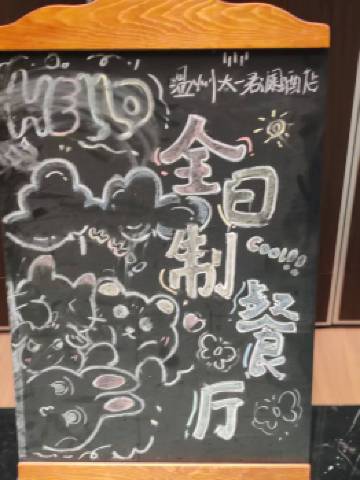 HELLO
温州太一君澜酒店
全日制餐厅
Cool!!